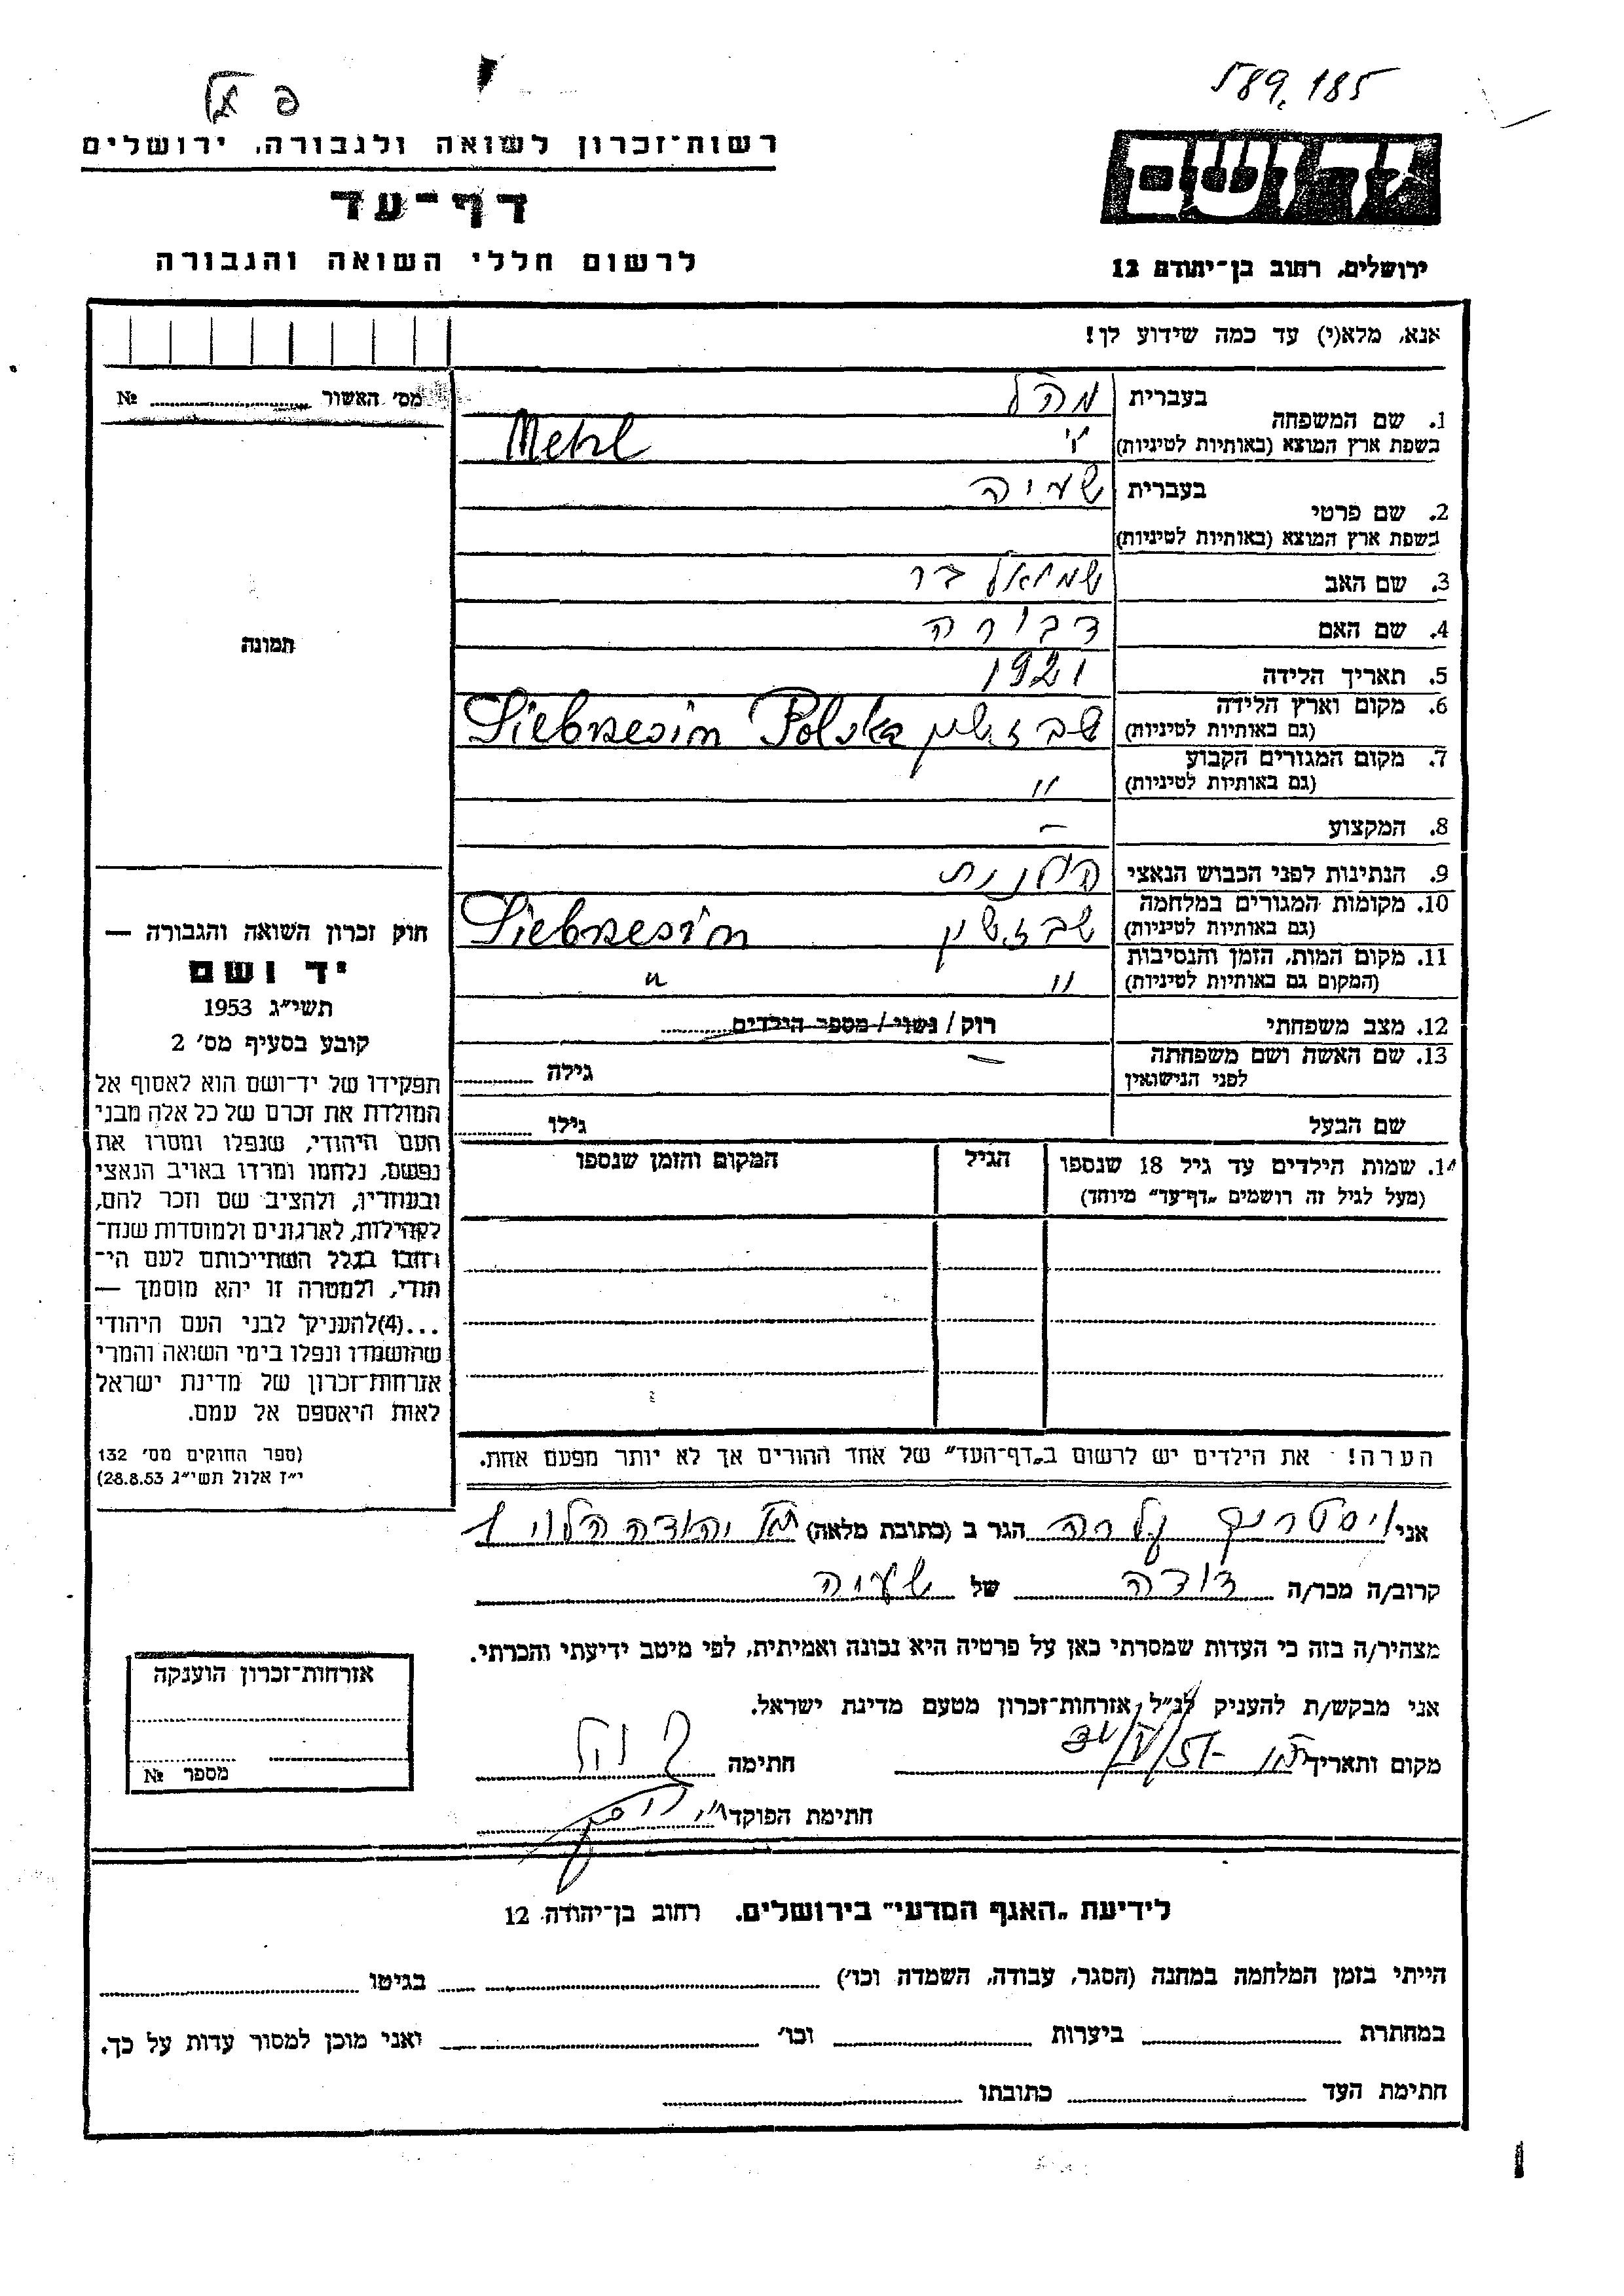 589.185
רשות־זכרון לשואה ולגבורה, ירושלים
יד ושם
דף־עד
לרשום חללי השואה והגבורה
ירושלים, רחוב בן־יהודה 12
אנא, מלא(י) עד כמה שידוע לך!
מס׳ האשור № 
1. שם המשפחה
בעברית מהל
בשפת ארץ המוצא (באותיות לטיניות) Mehl
2. שם פרטי
בעברית שעיה
בשפת ארץ המוצא (באותיות לטיניות)
3. שם האב שמואל בר
4. שם האם דבורה
5. תאריך הלידה 1921
6. מקום וארץ הלידה
(גם באותיות לטיניות) שבזשין Siebrzesin Polska
7. מקום המגורים הקבוע
(גם באותיות לטיניות) "
8. המקצוע –
9. הנתינות לפני הכבוש הנאצי פולנית
10. מקומות המגורים במלחמה
(גם באותיות לטיניות) שבזשין Siebrzesin
11. מקום המות, הזמן והנסיבות
(המקום גם באותיות לטיניות) " "
12. מצב משפחתי רוק / נשוי / מספר הילדים
13. שם האשה ושם משפחתה – גילה
לפני הנישואין
שם הבעל גילו
14. שמות הילדים עד גיל 18 שנספו הגיל המקום והזמן שנספו
(מעל לגיל זה רושמים „דף־עד״ מיוחד)
תמונה
חוק זכרון השואה והגבורה —
יד ושם
תשי״ג 1953
קובע בסעיף מס׳ 2
תפקידו של יד־ושם הוא לאסוף אל
המולדת את זכרם של כל אלה מבני
העם היהודי, שנפלו ומסרו את
נפשם, נלחמו ומרדו באויב הנאצי
ובעוזריו, ולהציב שם וזכר להם,
לקהילות, לארגונים ולמוסדות שנח־
רבו בגלל השתייכותם לעם הי־
הודי, ולמטרה זו יהא מוסמך —
...(4) להעניק לבני העם היהודי
שהושמדו ונפלו בימי השואה והמרי
אזרחות־זכרון של מדינת ישראל
לאות היאספם אל עמם.
(ספר החוקים מס׳ 132
י״ז אלול תשי״ג 28.8.53)
הערה! את הילדים יש לרשום ב„דף־העד״ של אחד ההורים אך לא יותר מפעם אחת.
אני הגר ב (כתובת מלאה) יהודה הלוי
קרוב/ה מכר/ה דודה של שעיה
מצהיר/ה בזה כי העדות שמסרתי כאן על פרטיה היא נכונה ואמיתית, לפי מיטב ידיעתי והכרתי.
אני מבקש/ת להעניק לנ״ל אזרחות־זכרון מטעם מדינת ישראל.
מקום ותאריך חתימה
חתימת הפוקד
אזרחות־זכרון הוענקה
מספר №
לידיעת „האגף המדעי״ בירושלים, רחוב בן־יהודה 12
הייתי בזמן המלחמה במחנה (הסגר, עבודה, השמדה וכו׳) בגיטו
במחתרת ביערות וכו׳ ואני מוכן למסור עדות על כך.
חתימת העד כתובתו